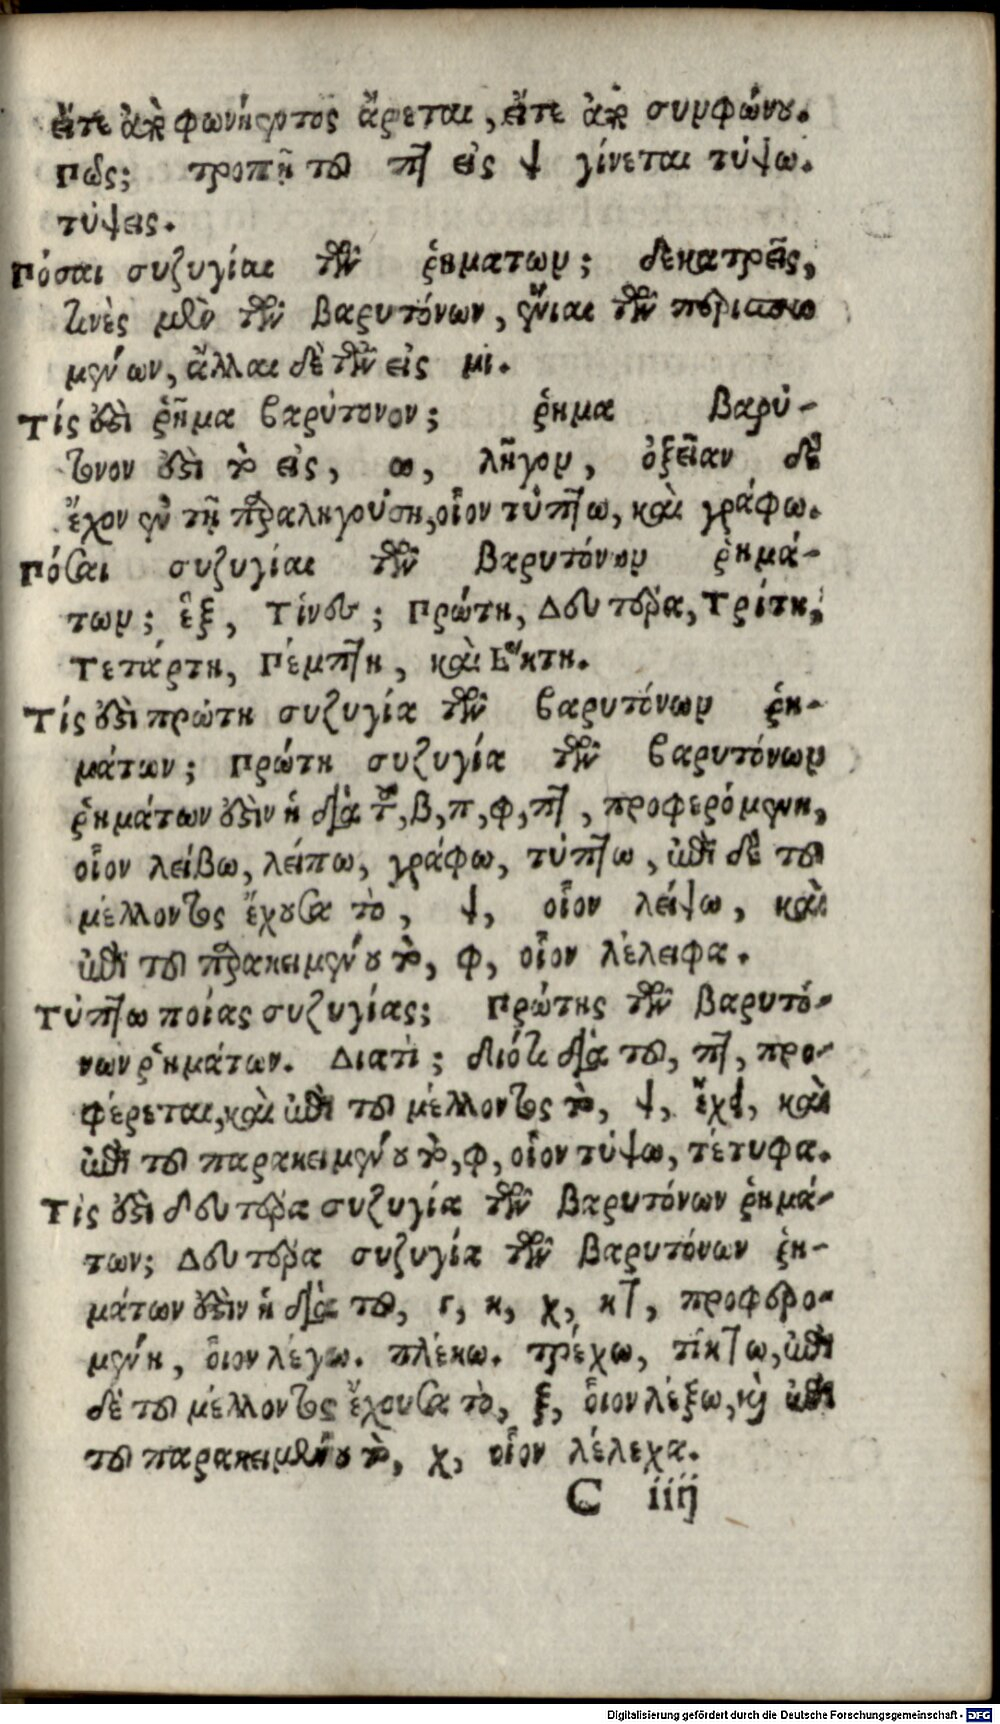 εἴτε ἀπὸ φωνήεντος ἄρεται, εἴτε ἀπὸ συμφώνου.
Πῶς; τροπῇ τοῦ πτ εἰς ψ γίνεται τύψω.
τύψεις.
Πόσαι συζυγίαι τῶν ῥημάτων; δεκατρεῖς,
τινὲς μὲν τῶν βαρυτόνων, ἔνιαι τῶν περισπω
μένων, ἄλλαι δὲ τῶν εἰς μι.
Τίς ἐστὶ ῥῆμα βαρύτονον; ῥημα βαρύ-
τονον ἐστὶ τὸ εἰς, ω, λῆγον, ὀξεῖαν δὲ
ἔχον ἐν τῇ παραληγούσῃ, οἷον τύπτω, καὶ γράφω.
Πόσαι συζυγίαι τῶν βαρυτόνων ῥημά-
των; ἓξ, Τίνες; Πρώτη, Δευτέρα, Τρίτη,
Τετάρτη, Πέμπτη, καὶ Ἕκτη.
Τίς ἐστὶ πρώτη συζυγία τῶν βαρυτόνων ῥη-
μάτων; Πρώτη συζυγία τῶν βαρυτόνων
ῥημάτων ἐστὶν ἡ διὰ τοῦ, β, π, φ, πτ, προφερόμενη,
οἷον λείβω, λείπω, γράφω, τύπτω, ἐπὶ δὲ τοῦ
μέλλοντος ἔχουσα τὸ, ψ, οἷον λείψω, καὶ
ἐπὶ τοῦ παρακειμένου τὸ, φ, οἷον λέλειφα.
Τύπτω ποίας συζυγίας; Πρώτης τῶν βαρυτό-
νων ῥημάτων. Διατί; διότι διὰ τοῦ, πτ, προ-
φέρεται, καὶ ἐπὶ τοῦ μέλλοντος τὸ, ψ, ἔχει, καὶ
ἐπὶ τοῦ παρακειμένου τὸ, φ, οἷον τύψω, τέτυφα.
Τίς ἐστὶ δευτέρα συζυγία τῶν βαρυτόνων ῥημά-
των; Δευτέρα συζυγία τῶν βαρυτόνων ῥη-
μάτων ἐστὶν ἡ διὰ τοῦ, γ, κ, χ, κτ, προφερο-
μένη, οἷον λέγω. πλέκω. τρέχω, τίκτω, ἐπὶ
δὲ τοῦ μέλλοντος ἔχουσα τὸ, ξ, οἷον λέξω, καὶ ἐπὶ
τοῦ παρακειμένου τὸ, χ, οἷον λέλεχα.
C iiij
Digitalisierung gefördert durch die Deutsche Forschungsgemeinschaft - DFG